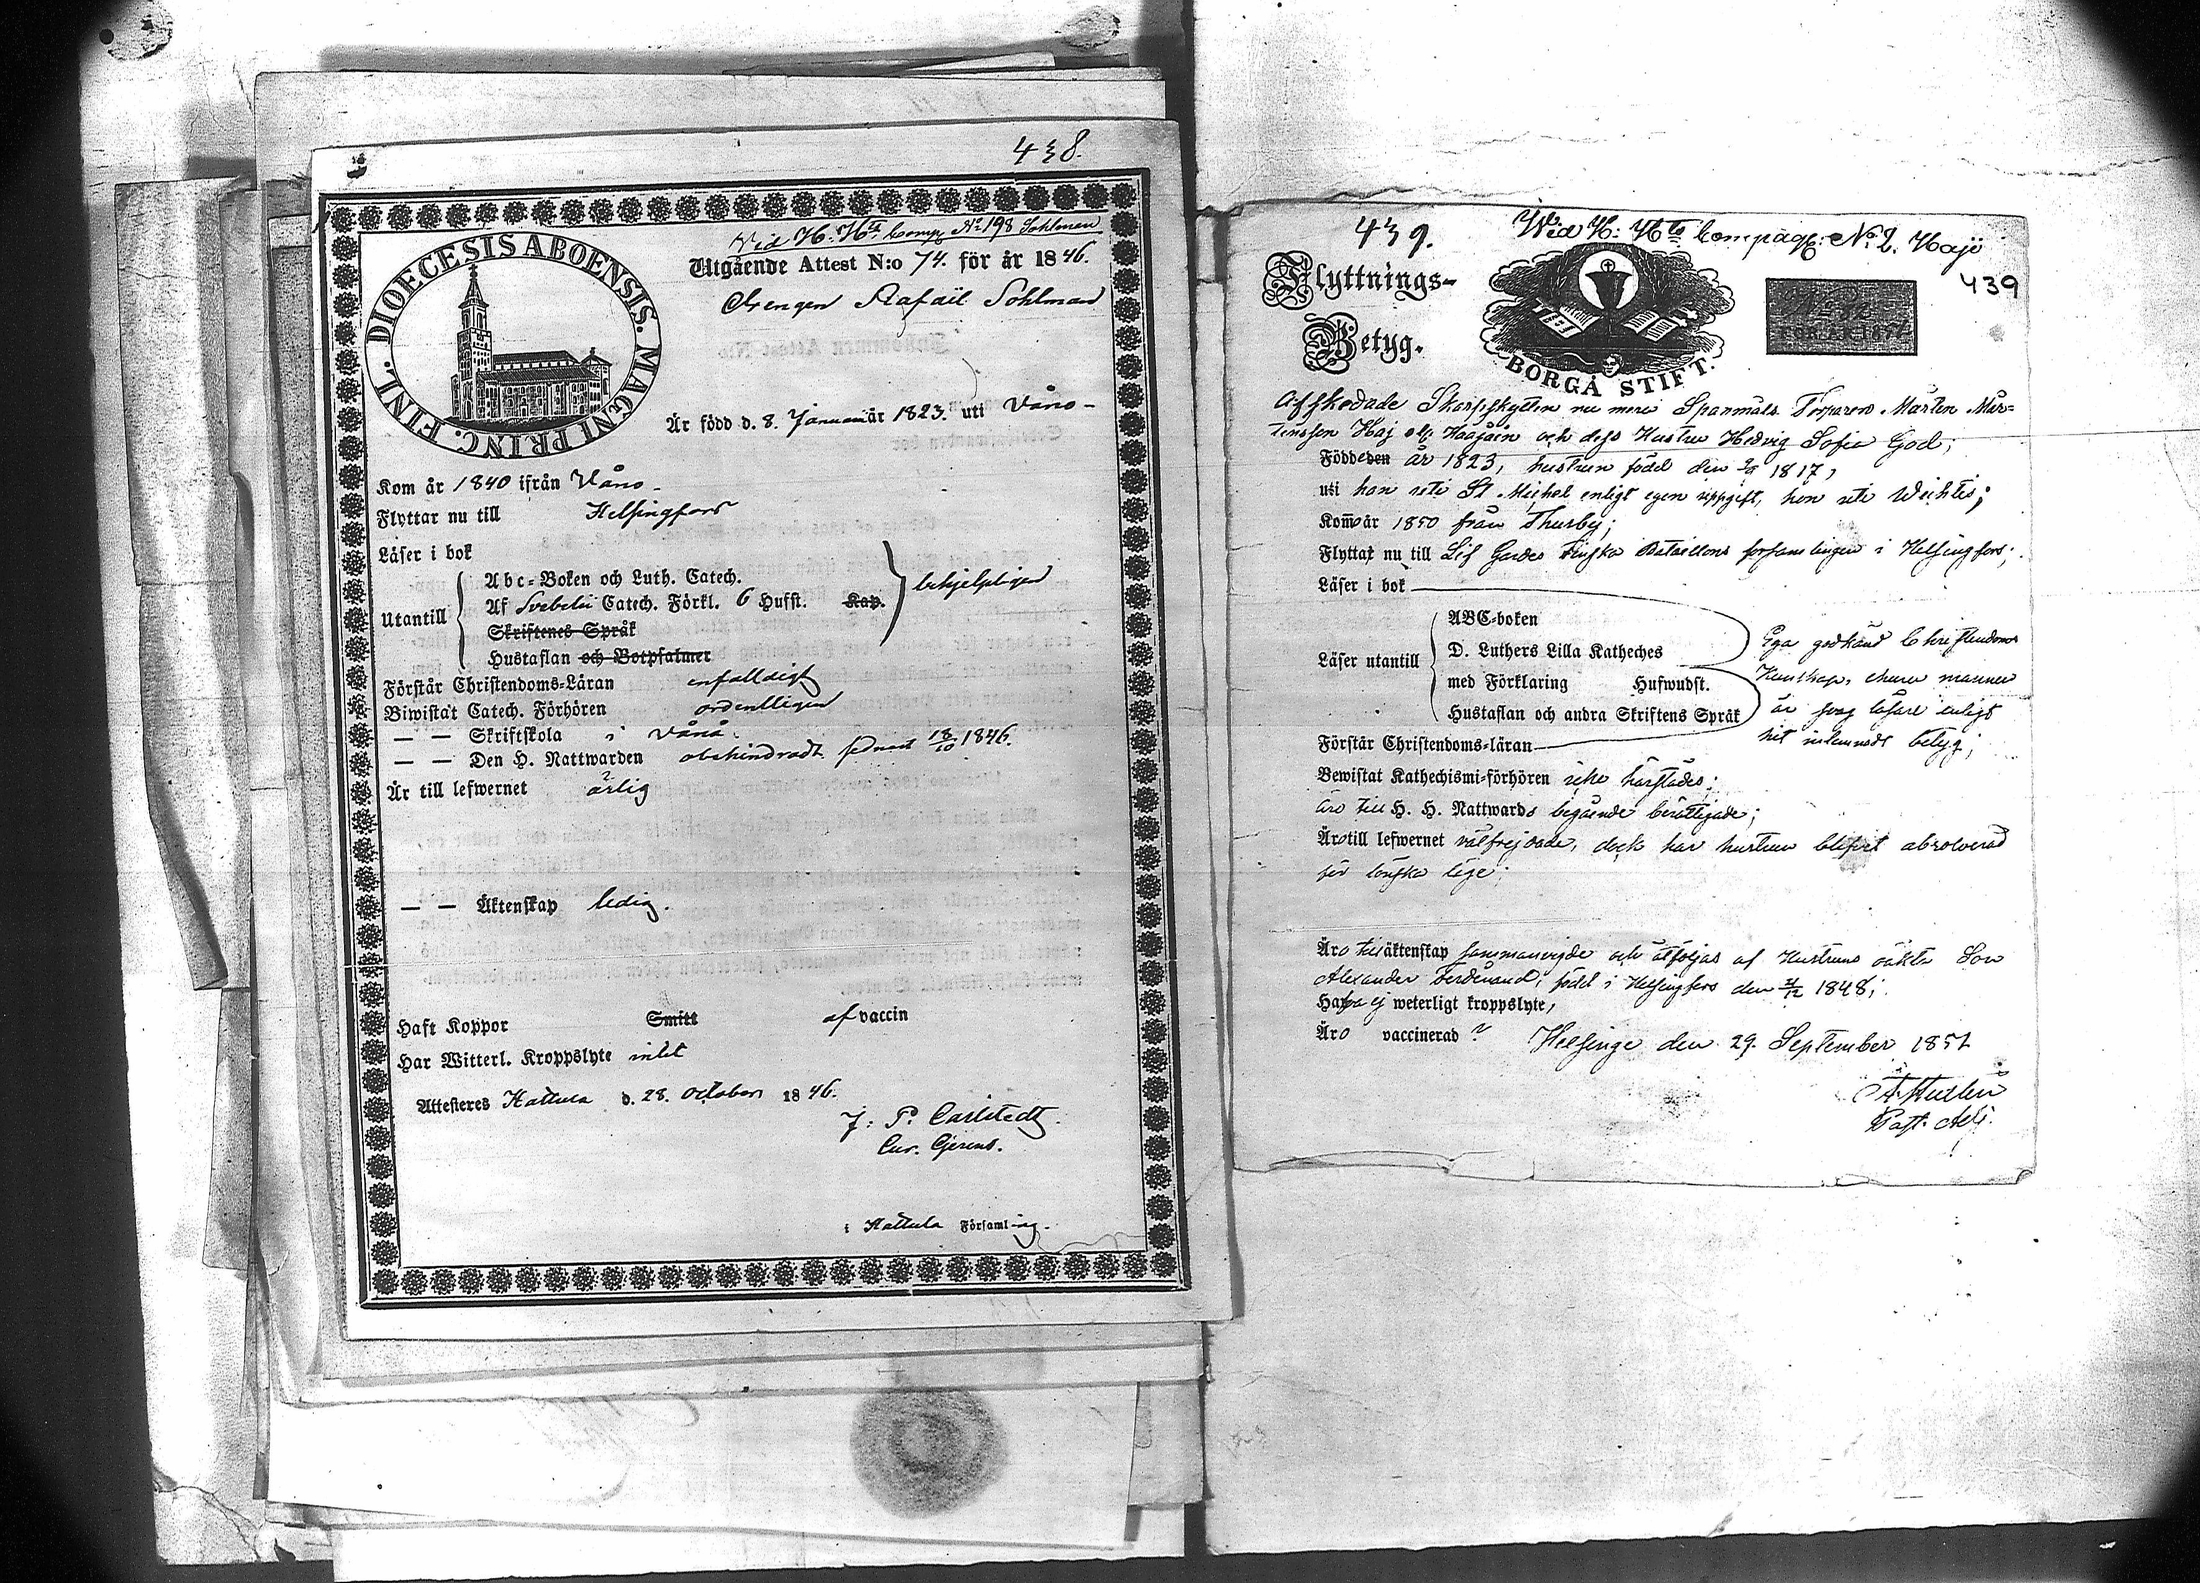 438.
Vid H: Hts Comp. No 198 Sohlman
DIOECESIS ABOENSIS. MAGNI PRINC. FINL.
Utgående Attest N:o 74. för år 1846.
Drengen Rafaël Sohlman
Är född d. 8. Januari år 1823. uti Våno-
Kom år 1840 ifrån Våno-
Flyttar nu till Helsingfors
Läser i bok
Utantill
Abc-Boken och Luth. Catech.
Af Svebelii Catech. Förkl. 6 Hufst. Kap.
Skriftenes Språk
Hustaflan och Botpsalmer
behjelpligen
Förstår Christendoms-Läran enfaldigt
Biwistat Catech. Förhören ordentligen
— — Skriftskola i Vånå.
— — Den H. Nattwarden obehindradt sednast 18/10 1846.
Är till lefwernet ärlig
— — Äktenskap ledig.
Haft Koppor Smitt af vaccin
Har Witterl. Kroppslyte intet
Attesteres Hattula d. 28. October 1846.
J. P. Carlstedt.
Cur. Gerens.
i Hattula Församling.
439.
Wid H: Hts Compagn: No. 2. Hajö
439
Flyttnings-
Betyg.
BORGÅ STIFT.
Afskedade Skarpskytten nu mera Spanmåls Torparen Mårten Mår-
tensson Haj och dess Hustru Hedvig Sofia God;
Födde den år 1823, hustrun född den 1817,
uti han uti St Michel enligt egen uppgift, hon uti Wichtis;
Kommo år 1850 från Thusby;
Flytta nu till Lif Gardes Finska Bataillons församlingen i Helsingfors;
Läser i bok
Läser utantill
ABC-boken
D. Luthers Lilla Katheches
med Förklaring Hufwudst.
Hustaflan och andra Skriftens Språk
Förstår Christendoms-läran
Ega godkänd Christendoms
Kunskap, ehuru mannen
är svag läsare enligt
hit inlemnadt betyg;
Bewistat Kathechismi-förhören icke härstädes;
äro till H. H. Nattwards begående berättigade;
Äro till lefwernet välfrejdade, dock har hustrun blifvit absolverad
för lönska läge;
Äro till äktenskap sammanvigde och åtföljas af Hustruns oäkta Son
Alexander Ferdinand, född i Helsingfors den 1848;
Hafva ej weterligt kroppslyte,
Äro vaccinerad? Helsinge den 29. September 1851
Past. Adj.